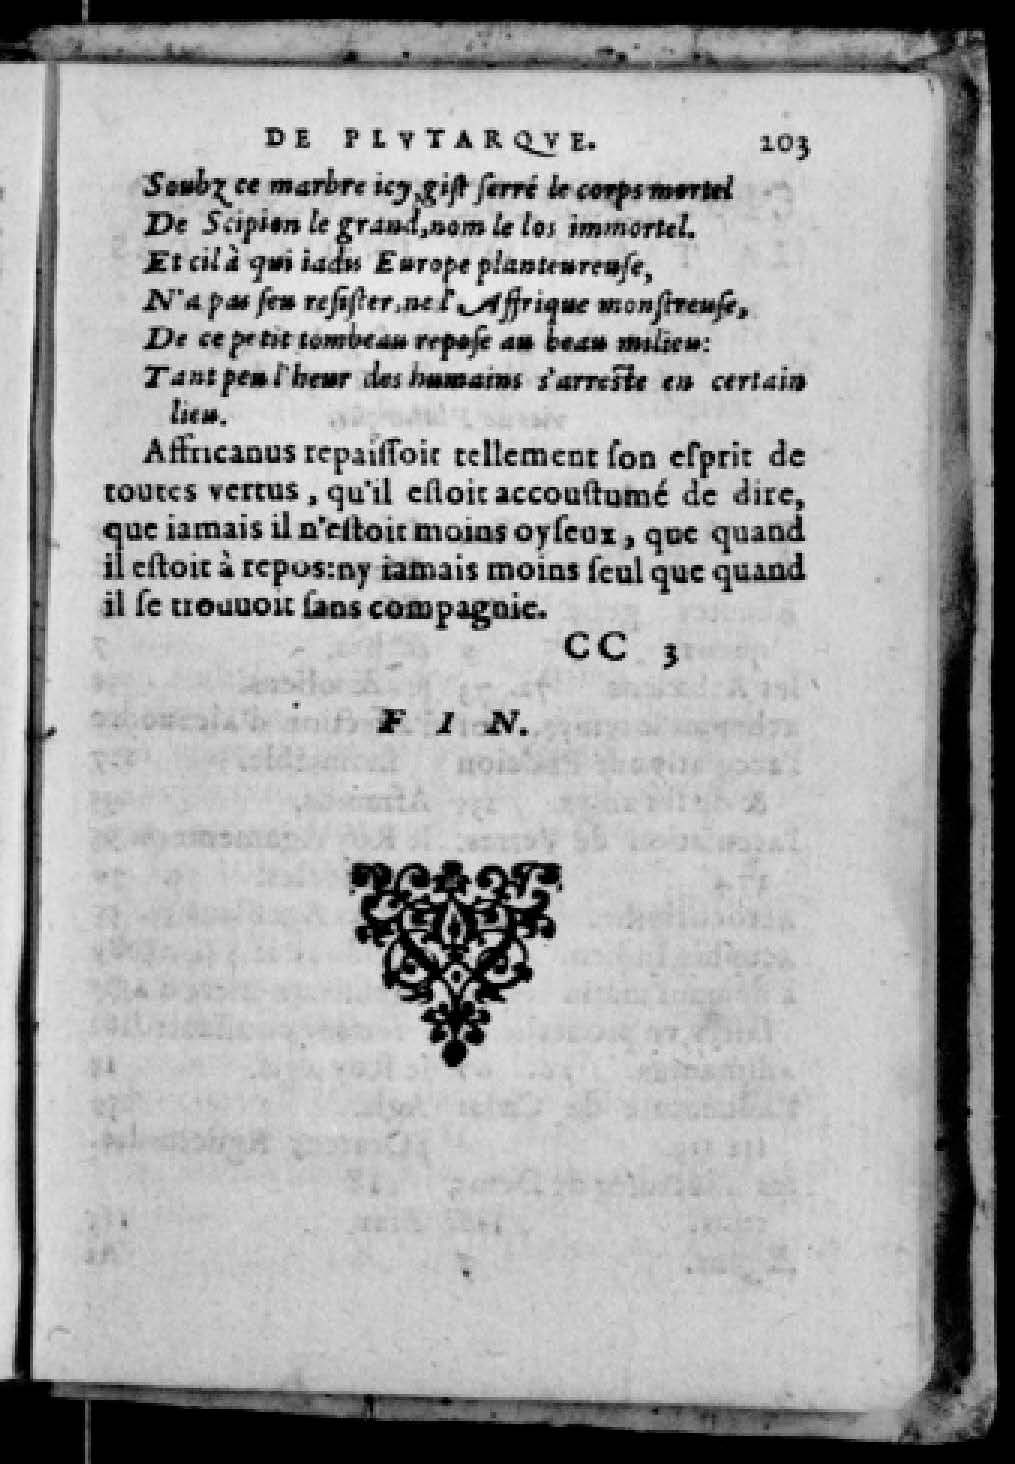 DE PLVTARQVE. 203
Soubz ce marbre icy, gist serré le corps mortel
De Scipion le grand, nom le los immortel.
Et cil à qui iadis Europe planteureuse,
N'a pas seu resister, ne l'Affrique monstreuse,
De ce petit tombeau repose au beau milieu:
Tant peu l'heur des humains s'arreste en certain
lieu.
Affricanus repaissoit tellement son esprit de
toutes vertus, qu'il estoit accoustumé de dire,
que iamais il n'estoit moins oyseux, que quand
il estoit à repos: ny iamais moins seul que quand
il se trouuoit sans compagnie.
CC 3
FIN.